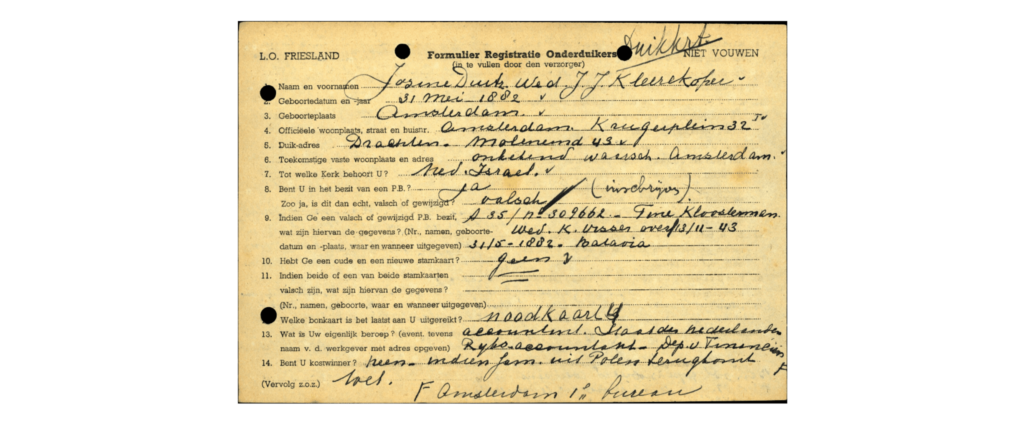 Duikkrt
L.O. FRIESLAND Formulier Registratie Onderduikers NIET VOUWEN
(in te vullen door den verzorger)
Naam en voornamen Wed. J. J. Kleerekoper
2. Geboortedatum en -jaar 31 Mei 1882
3. Geboorteplaats Amsterdam.
4. Officiëele woonplaats, straat en huisnr. Amsterdam Krugerplein 32 I
5. Duik-adres Drachten - 43
6. Toekomstige vaste woonplaats en adres onbekend waarsch. Amsterdam.
7. Tot welke Kerk behoort U? Ned. Israel.
8. Bent U in het bezit van een P.B.? ja
Zoo ja, is dit dan echt, valsch of gewijzigd? valsch
9. Indien Ge een valsch of gewijzigd P.B. bezit, A 35/No 309662 - Tine Kloosterman
wat zijn hiervan de gegevens? (Nr., namen, geboorte- Wed. K. Visser 13/11-43
datum en -plaats, waar en wanneer uitgegeven) 31/5-1882 - Batavia
10. Hebt Ge een oude en een nieuwe stamkaart? geen
11. Indien beide of een van beide stamkaarten
valsch zijn, wat zijn hiervan de gegevens?
(Nr., namen, geboorte, waar en wanneer uitgegeven)
Welke bonkaart is het laatst aan U uitgereikt? noodkaart
13. Wat is Uw eigenlijk beroep? (event. tevens accountant. Staat der Nederlanden
naam v. d. werkgever met adres opgeven) Rijksaccountant - Dep. v. Financiën
14. Bent U kostwinner? neen - indien fam. uit Polen terugkomt
(Vervolg z.o.z.) wel.
F Amsterdam 1e bureau